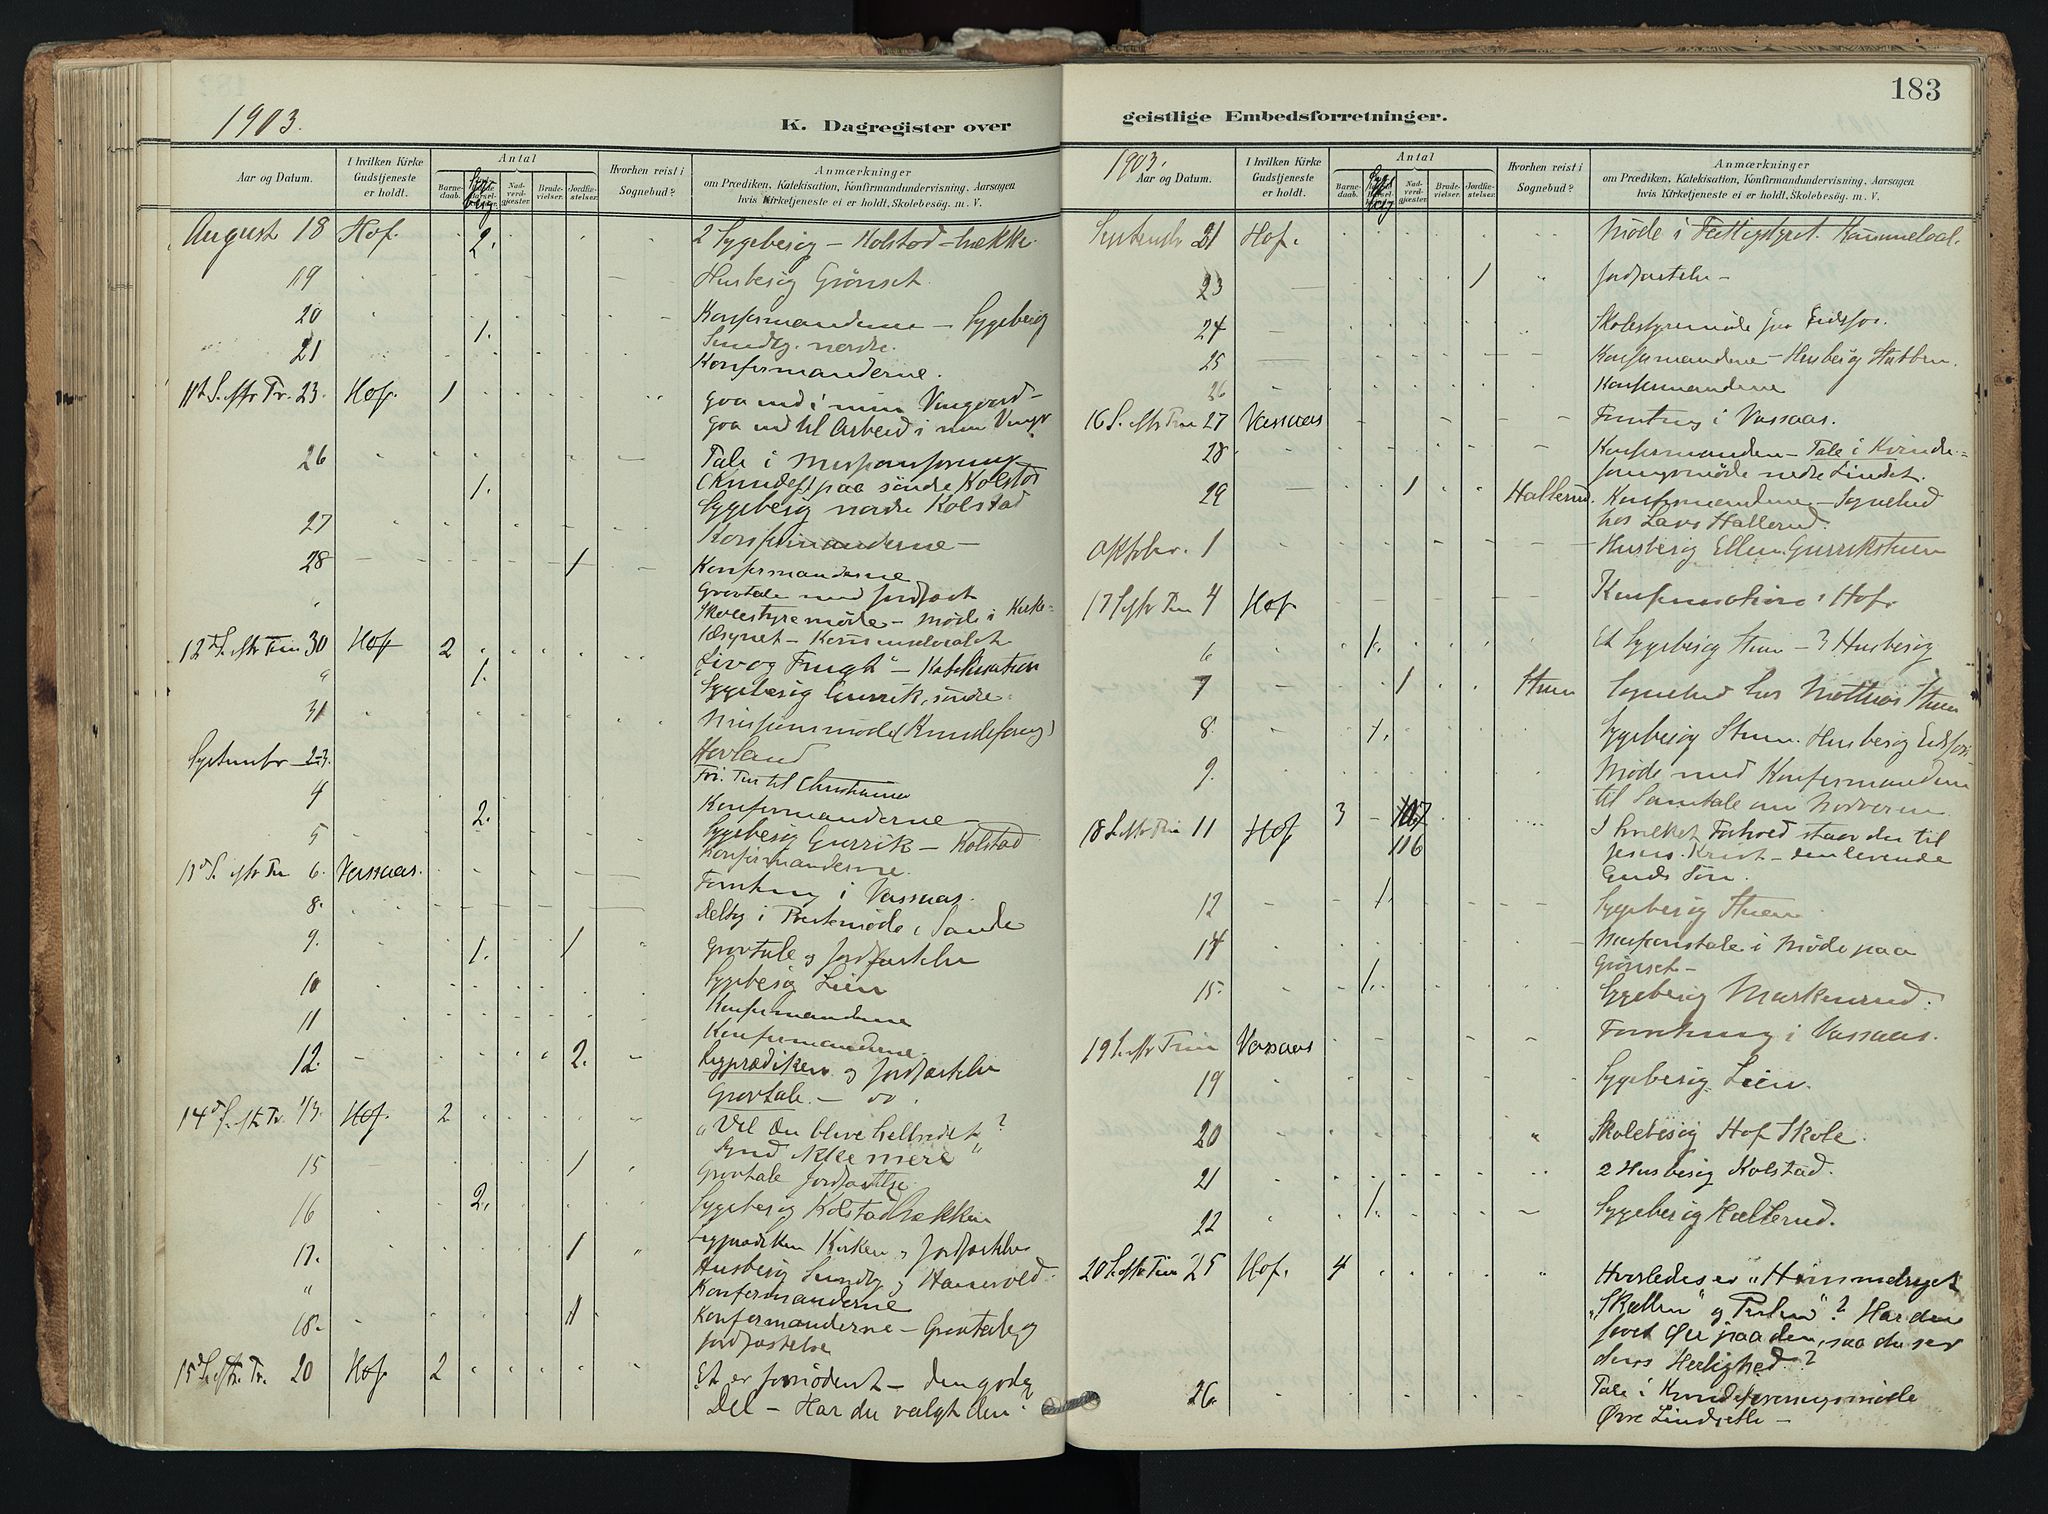 1903.
K. Dagregister over
Aar og Datum.
I hvilken Kirke
Gudstjeneste
er holdt.
Antal
Barne-
daab.
Syge-
besøg
Nad-
verd-
gjæster.
Brude-
vielser.
Jordfæ-
stelser.
Hvorhen reist i
Sognebud?
Anmærkninger
om Prædiken, Katekisation, Konfirmandundervisning, Aarsagen
hvis Kirketjeneste ei er holdt, Skolebesøg. m. V.
August 18 Hof. 2. 2 Sygebesøg - Kolstad-
19 Husbesøg Grønset.
20 1. Konfirmanderne - Sygebesøg
Sundby nordre.
21 Konfirmanderne.
11te S. eftr Tr. 23. Hof. 1 Gaa ud i min Vingaard -
Gaa ud til Arbeid i min Ving.
26 1. Tale i
(Kvindef) paa søndre Kolstad
Sygebesøg nordre Kolstad
27 Konfirmanderne -
28 1 Konfirmanderne
Gravtale med Jordfæst
" Skolestyremøde - Møde i Kirke-
tilsynet - Kommunelocalet
12 d S. eftr Trin 30 Hof 2 "Liv og Frugt" - Katekisation
" 1. Sygebesøg Gurrik, søndre.
31 Missionsmøde (Kvindeforeng)
Hovland
September 2-3. Fri. Tur til Christiania
4 2. Konfirmanderne
Sygebesøg Gurrik - Kolstad
5 Konfirmanderne.
13 d S. eftr Trin 6. Vassaas. Forretning i Vassaas.
8. Deltog i Præstemøde i Sande
9. 1. 1 Gravtale og Jordfæstelse
Sygebesøg Lien
10 Konfirmanderne
11 Konfirmanderne.
12. 2. Ligprædiken og Jordfæstelse
Gravtale. - do.
14 d S. eft. Tr. 13. Hof. 2 "Vil du blive helbredet?
Synd ikke mere"
15 1 Gravtale Jordfæstelse
16 2. Sygebesøg Kolstad Bækken
17. 1 Ligprædiken Kirken og Jordfæstelse
Husbesøg Sundby og Hanevold.
" Konfirmanderne
18. 1 Konfirmanderne - Gravtale og
Jordfæstelse
15 d S. eftr. Tr. 20 Hof. 2 Et er fornødent - den gode
Del - Har du valgt den?
183
geistlige Embedsforretninger.
1903.
Aar og Datum.
I hvilken Kirke
Gudstjeneste
er holdt.
Antal
Barne-
daab.
Syge-
besøg
Nad-
verd-
gjæster.
Brude-
vielser.
Jordfæ-
stelser.
Hvorhen reist i
Sognebud?
Anmærkninger
om Prædiken, Katekisation, Konfirmandundervisning, Aarsagen
hvis Kirketjeneste ei er holdt, Skolebesøg. m. V.
Septembr 21 Hof. Møde i Fattigstyret. Kommunelocal.
23 1 Jordfæstelse -
24 Skolestyremøde paa Eidsfos.
25 Konfirmanderne - Husbesøg
26 Konfirmanderne
16 S. eftr Trin 27 Vassaas Forretning i Vassaas.
28 Konfirmanderne - Tale i Kvinde-
foreningsmøde nedre Lindset.
29 1 Hallerud. Konfirmanderne - Sognebud
hos Lars Hallerud.
Oktobr. 1 Husbesøg Ellen Gurrikstuen
17 S. eftr Trin 4 Hof Konfirmation i Hof.
6 1. Et Sygebesøg Stuen - 3 Husbesøg
7 1 Stuen Sognebud hos Mathias Stuen
8. 1. Sygebesøg Stuen. Husbesøg Eidsfos.
9. Møde med Konfirmanderne
til Samtale om Nadveren.
18 S. eftr Trin 11 Hof 3 107 I hvilket Forhold staar du til
116 Jesus Krist - den levende
Guds Søn.
12 1. Sygebesøg Stuen.
14 Missionstale i Møde paa
Grønset -
15. 1. Sygebesøg Muskerud.
19 S. eftr Trin Vassaas Forretning i Vassaas.
19 Sygebesøg Lien.
20 Skolebesøg Hof Skole.
21 2 Husbesøg Kolstad.
22 1. Sygebesøg Hallerud.
20 S. eftr Trin 25 Hof. 4 Hvorledes er "Himmeriget
"Skatten" og Perlen"? Har du
faaet Øie paa den, saa du ser
dens Herlighed?
26. Tale i Kvindeforeningsmøde
Øvre Lindset -